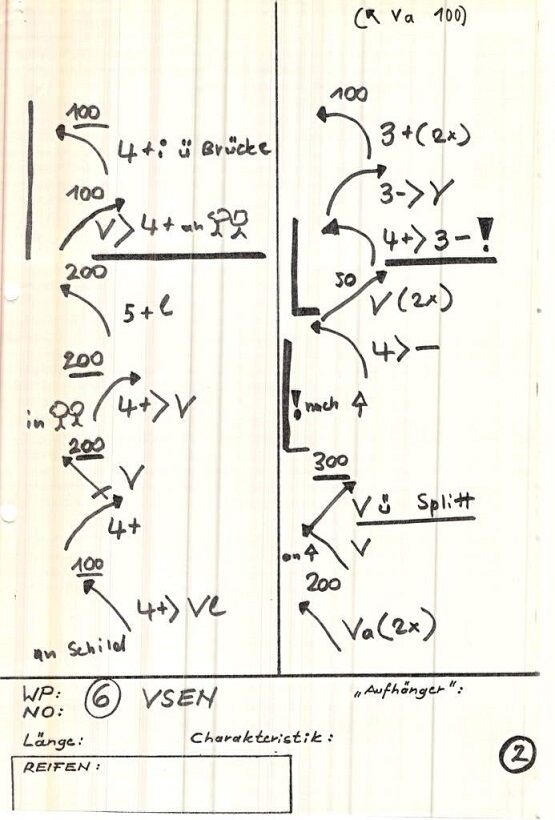 (↖ Va 100)
100
4+; ü Brücke
100
V> 4+ an
200
5+l
200
in
4+>V
200
V
4+
100
4+> Vl
an Schild
100
3+(2x)
3->V
4+>3-!
50
V(2x)
4>-
! nach ↑
300
V ü Splitt
an ↑
V
200
Va(2x)
WP:
NO:
6 VSEN
„Aufhänger":
Länge:
Charakteristik:
REIFEN:
2